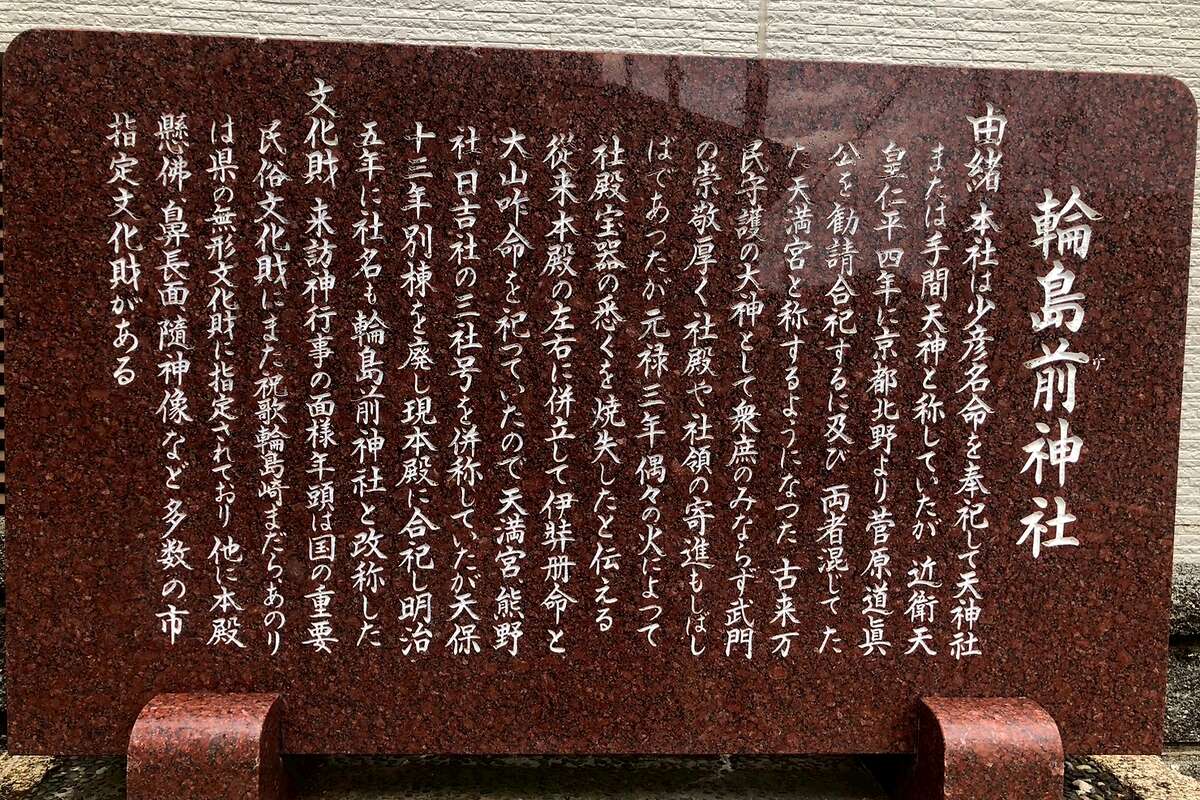 輪島前神社
サキ
由緒 本社は少彦名命を奉祀して天神社
または手間天神と称していたが 近衛天
皇仁平四年に京都北野より菅原道眞
公を勧請合祀するに及び 両者混じてた
た天満宮と称するようになつた 古来万
民守護の大神として衆庶のみならず武門
の崇敬厚く社殿や社領の寄進もしばし
ばであつたが元禄三年偶々の火によつて
社殿宝器の悉くを焼失したと伝える
従来本殿の左右に併立して伊弉册命と
大山咋命を祀つていたので天満宮、熊野
社、日吉社の三社号を併称していたが天保
十三年別棟を廃し現本殿に合祀し明治
五年に社名も輪島前神社と改称した
文化財 来訪神行事の面様年頭は国の重要
民俗文化財にまた祝歌輪島崎まだら、あのり
は県の無形文化財に指定されており 他に本殿
懸佛、鼻長面、随神像など多数の市
指定文化財がある